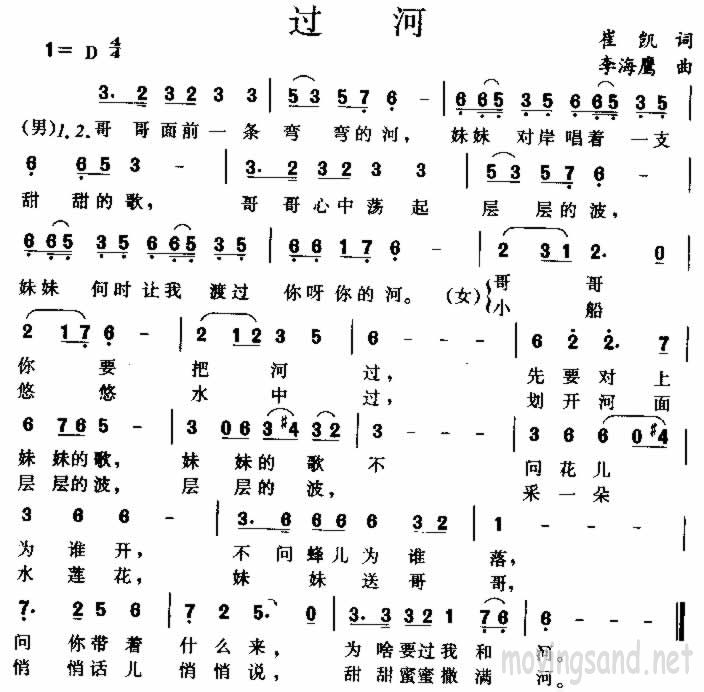 过 河
1= D 4/4
崔 凯 词
李海鹰 曲
3. 2 3 2 3 3 | 5 3 5 7 6 - | 6 6 5 3 5 6 6 5 3 5 |
(男)1.2.哥 哥 面 前 一 条 弯 弯 的 河, 妹 妹 对 岸 唱 着 一 支
6 6 5 3 - | 3. 2 3 2 3 3 | 5 3 5 7 6 - |
甜 甜 的 歌, 哥 哥 心 中 荡 起 层 层 的 波,
6 6 5 3 5 6 6 5 3 5 | 6 6 1 7 6 - | 2 3 1 2. 0 |
妹 妹 何 时 让 我 渡 过 你 呀 你 的 河。 (女) 哥 哥
小 船
2 1 7 6 - | 2 1 2 3 5 | 6 - - - | 6 2 2. 7 |
你 要 把 河 过, 先 要 对 上
悠 悠 水 中 过, 划 开 河 面
6 7 6 5 - | 3 0 6 3 #4 3 2 | 3 - - - | 3 6 6 0 #4 |
妹 妹 的 歌, 妹 妹 的 歌 不 问 花 儿
层 层 的 波, 层 层 的 波, 采 一 朵
3 6 6 - | 3. 6 6 6 6 3 2 | 1 - - - |
为 谁 开, 不 问 蜂 儿 为 谁 落,
水 莲 花, 妹 妹 送 哥 哥,
7. 2 5 6 | 7 2 5. 0 | 3. 3 3 2 1 7 6 | 6 - - - ||
问 你 带 着 什 么 来, 为 啥 要 过 我 和 河。
悄 悄 话 儿 悄 悄 说, 甜 甜 蜜 蜜 撒 满 河。
movingsand.net